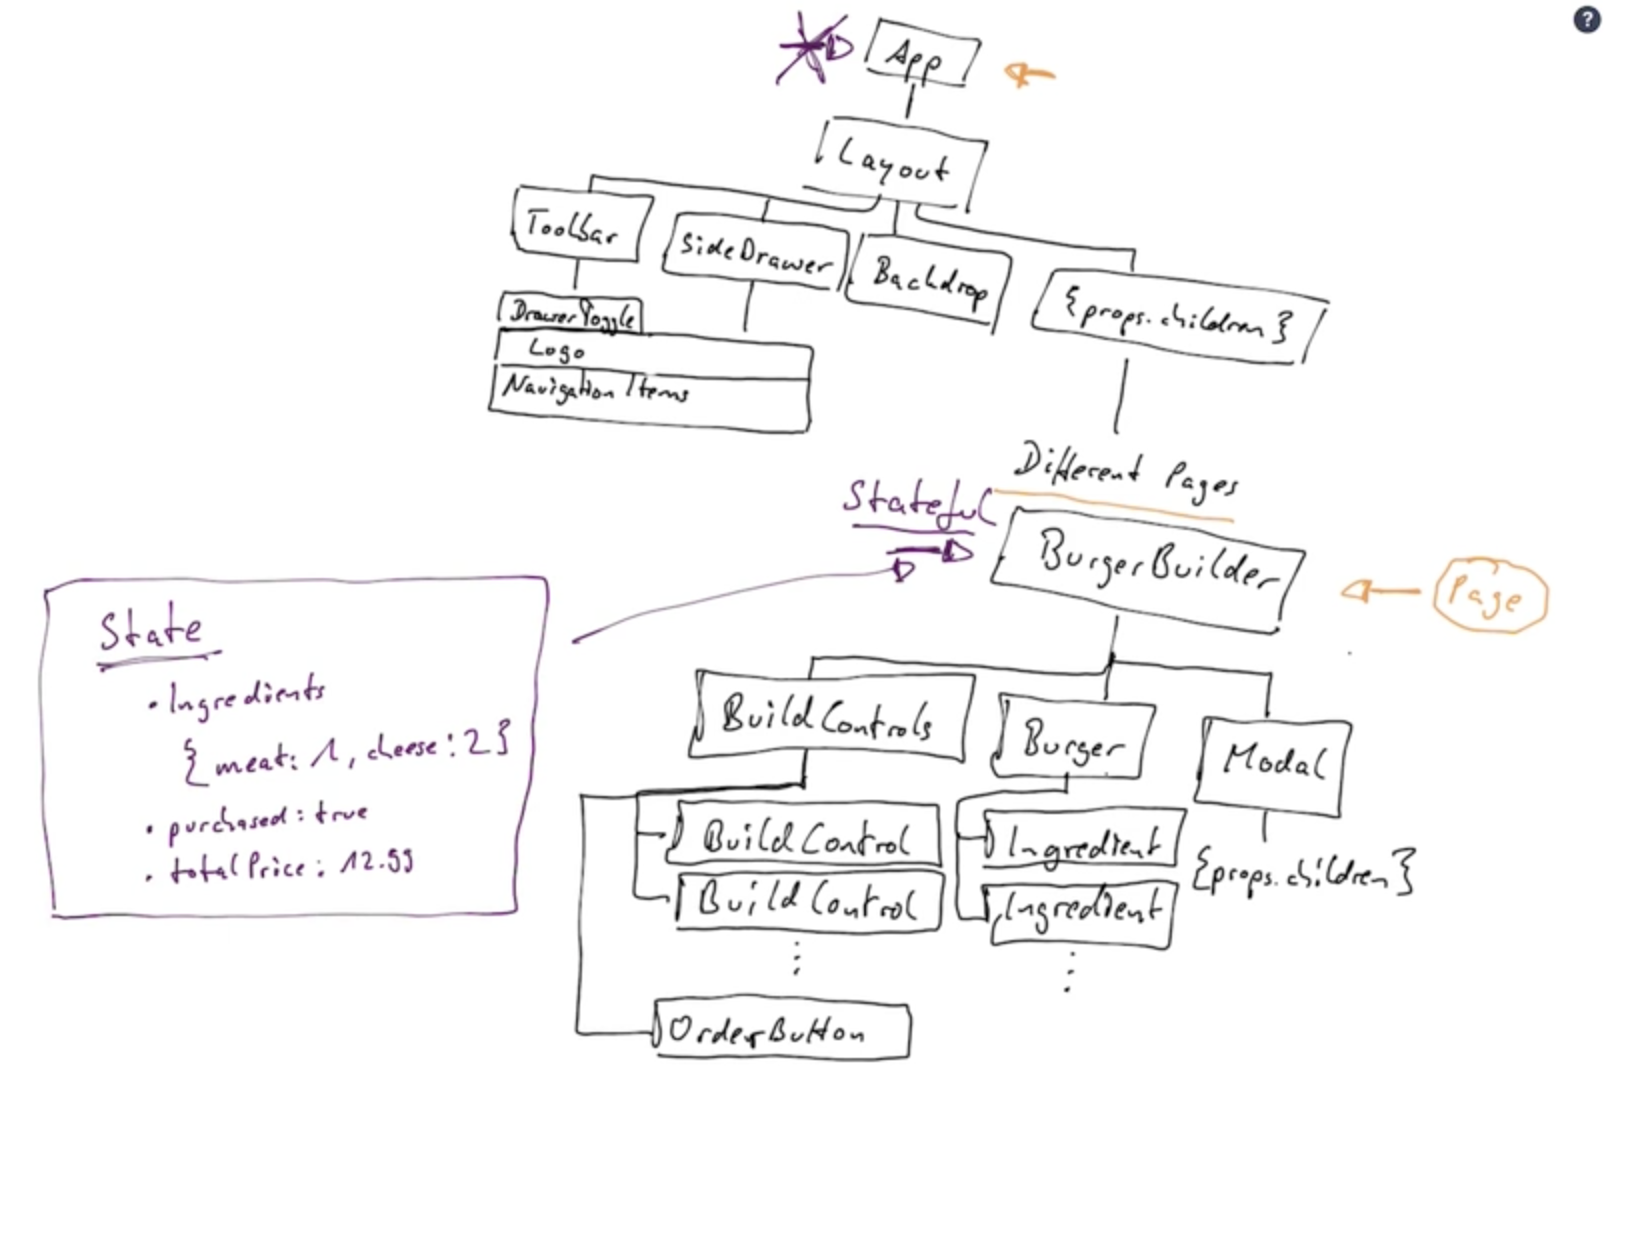 ?
App
Layout
Toolbar
SideDrawer
Backdrop
{props.children}
DrawerToggle
Logo
Navigation Items
Different Pages
Stateful
BurgerBuilder
Page
State
• Ingredients
{meat: 1, cheese: 2}
• purchased: true
• totalPrice: 12.99
BuildControls
Burger
Modal
BuildControl
Ingredient
{props.children}
BuildControl
Ingredient
⋮
⋮
OrderButton